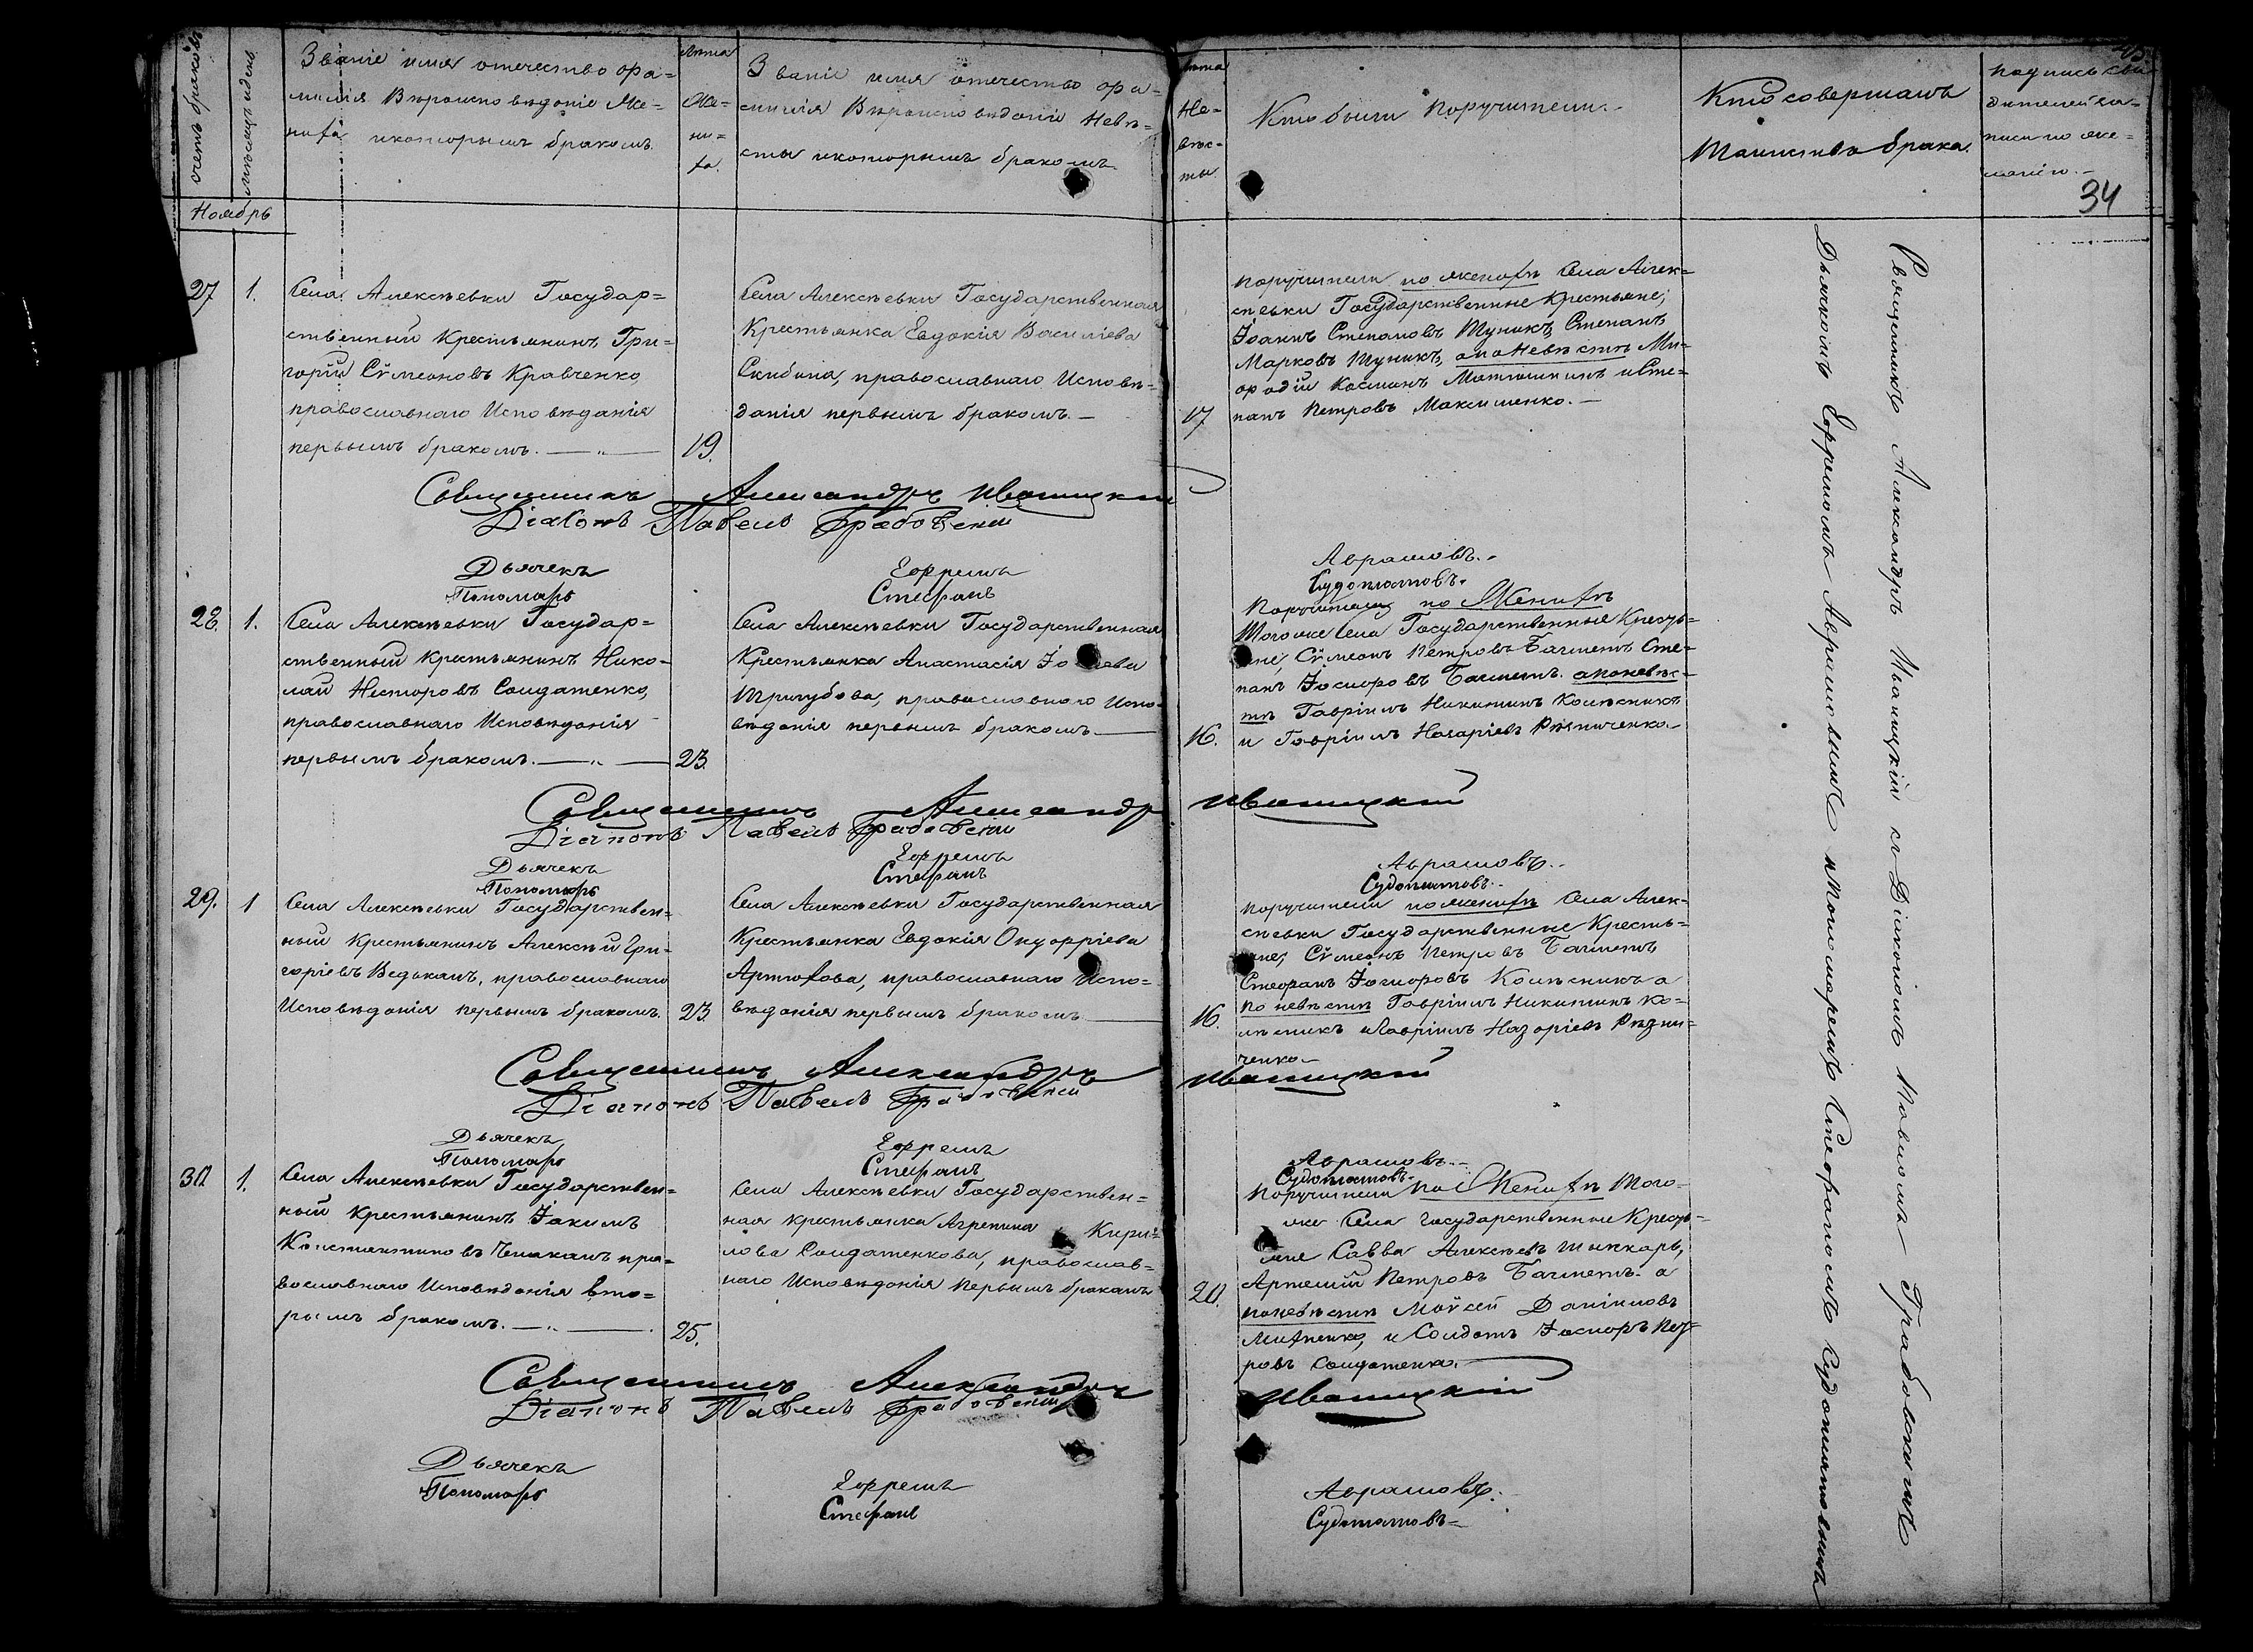 счетъ браковъ
мѣсяцъ и день
Званіе имя отечество фа=
милія Вѣроисповѣданіе Же=
ниха и которымъ бракомъ.
Лѣта
Же=
ни=
ха.
Званіе имя отечество фа=
милія Вѣроисповѣданіе Невѣ=
сты и которымъ бракомъ
Лѣта
Не=
вѣс=
ты.
Кто были поручители.
Кто совершалъ
таинство брака.
подпись сви
дителей за=
писи по же=
ланію.
34
Ноябрь
27 1.
Села Алексѣевки Государ=
ственный Крестьянинъ Гри=
горій Сѵмеоновъ Кравченко,
православнаго Исповѣданія
первымъ бракомъ.
19.
Села Алексѣевки Государственная
Крестьянка Евдокія Василіева
Скибина, православнаго Исповѣ=
данія первымъ бракомъ.
17
поручители по женихѣ Села Алек=
сѣевки Государственные Крестьяне;
Іоаннъ Степановъ Туникъ, Степанъ
Марковъ Туникъ, а по Невѣстѣ Ми=
фодій Косминъ и Сте=
панъ Петровъ Максименко.
Священникъ Александръ Иваницкій
Діаконъ Павелъ Грабовскій
Дьячекъ Ефремъ Аврамовъ.
Пономарь Стефанъ Судоплатовъ.
28. 1.
Села Алексѣевки Государ=
ственный Крестьянинъ Нико=
лай Несторовъ Солдатенко,
православнаго Исповѣданія
первымъ бракомъ.
23.
Села Алексѣевки Государственная
Крестьянка Анастасія
Тригубова, православнаго Испо=
вѣданія первымъ бракомъ
16.
Поручители по Женихѣ
Того же Села Государственные Кресть=
яне, Сѵмеонъ Петровъ Багметъ Сте=
панъ Ѳедоровъ Багметъ. а по невѣс=
тѣ Гавріилъ Никитинъ Колѣсникъ
и Гавріилъ Назаріевъ Рѣзниченко
Священникъ Александръ Иваницкій
Діаконъ Павелъ Грабовскій
Дьячекъ Ефремъ Аврамовъ.
Пономарь Стефанъ Судоплатовъ.
29. 1
Села Алексѣевки Государствен=
ный Крестьянинъ Алексѣй Гри=
горіевъ Ведоканъ, православнаго
Исповѣданія первымъ бракомъ.
23.
Села Алексѣевки Государственная
Крестьянка Евдокія Онуфріева
Артюхова, православнаго Испо=
вѣданія первымъ бракомъ
16.
поручители по женихѣ Села Алек=
сѣевки Государственные Кресть=
яне; Сѵмеонъ Петровъ Багметъ
Стефанъ Ѳедоровъ Колѣсникъ а
по невѣстѣ Гавріилъ Никитинъ Ко=
лѣсникъ и Гавріилъ Назаріевъ Рѣзни=
ченко
Священникъ Александръ Иваницкій
Діаконъ Павелъ Грабовскій
Дьячекъ Ефремъ Аврамовъ.
Пономарь Стефанъ Судоплатовъ.
30 1.
Села Алексѣевки Государствен=
ный Крестьянинъ Іакимъ
Константиновъ пра=
вославнаго Исповѣданія вто=
рымъ бракомъ.
25.
Села Алексѣевки Государствен=
ная крестьянка Агрепина Кири=
лова Солдатенкова, православ=
наго Исповѣданія Первымъ бракомъ
20.
Поручители по Женихѣ Того
же Села Государственные Кресть=
яне Савва Алексѣевъ Шинкарь,
Артемій Петровъ Багметъ. а
по невѣстѣ Моѵсей Даніиловъ
и Солдатъ Ѳедоръ Пет=
ровъ Солдатенко.
Священникъ Александръ Иваницкій
Діаконъ Павелъ Грабовскій
Дьячекъ Ефремъ Аврамовъ.
Пономарь Стефанъ Судоплатовъ
Священникъ Александръ Иваницкій съ Діакономъ Павломъ Грабовскимъ
Дьячкомъ Ефремомъ Аврамовымъ и Пономаремъ Стефаномъ Судоплатовымъ